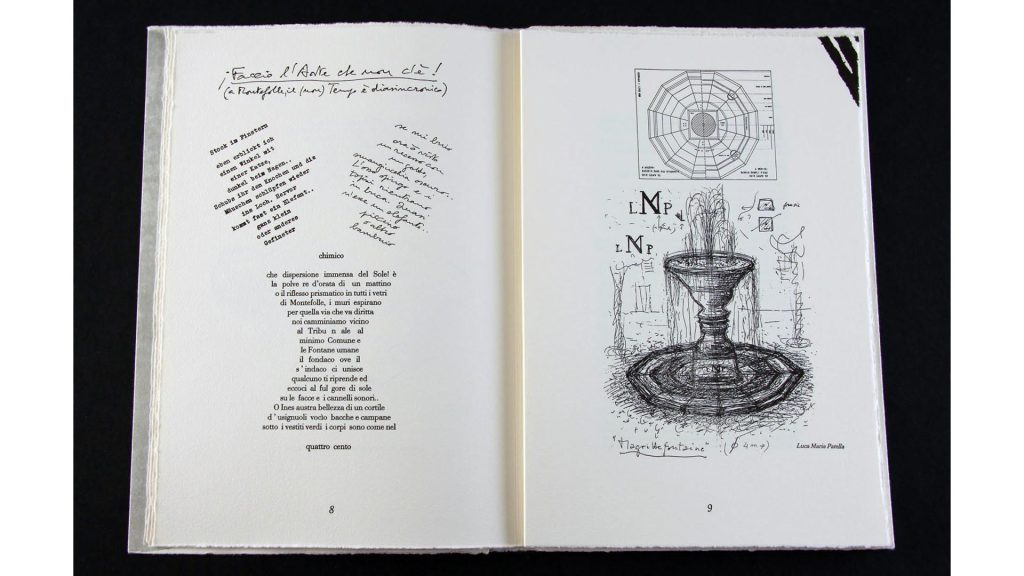 ¡Faccio l'Arte che non c'è!
(a Montefolle, il (non) Tempo è diasincronico)
Stock im Finstern
eben erblickt ich
einen Winkel mit
einer Katze,
dunkel beim Magen..
Schubs ihr den Knochen und die
Mäuschen schlüpfen wieder
ins Loch. Hervor
kommt fast ein Elefant..
ganz klein
oder anderes
Gefinster
se mi brio
ora ò visto
un recesso con
un gatto,
oscuro..
L'osso spingo e i
topi rientrano
in buca. Quasi
viene un elefante..
piccino
o altro
chimico
che dispersione immensa del Sole! è
la polve re d'orata di un mattino
o il riflesso prismatico in tutti i vetri
di Montefolle, i muri espirano
per quella via che va diritta
noi camminiamo vicino
al Tribu n ale al
minimo Comune e
le Fontane umane
il fondaco ove il
s'indaco ci unisce
qualcuno ti riprende ed
eccoci al ful gore di sole
su le facce e i cannelli sonori..
O Ines austra bellezza di un cortile
d'usignuoli vocìo bacche e campane
sotto i vestiti verdi i corpi sono come nel
quattro cento
8
LMP
LNP
"Magrittefontaine" (ø 4 m)
Luca Maria Patella
9